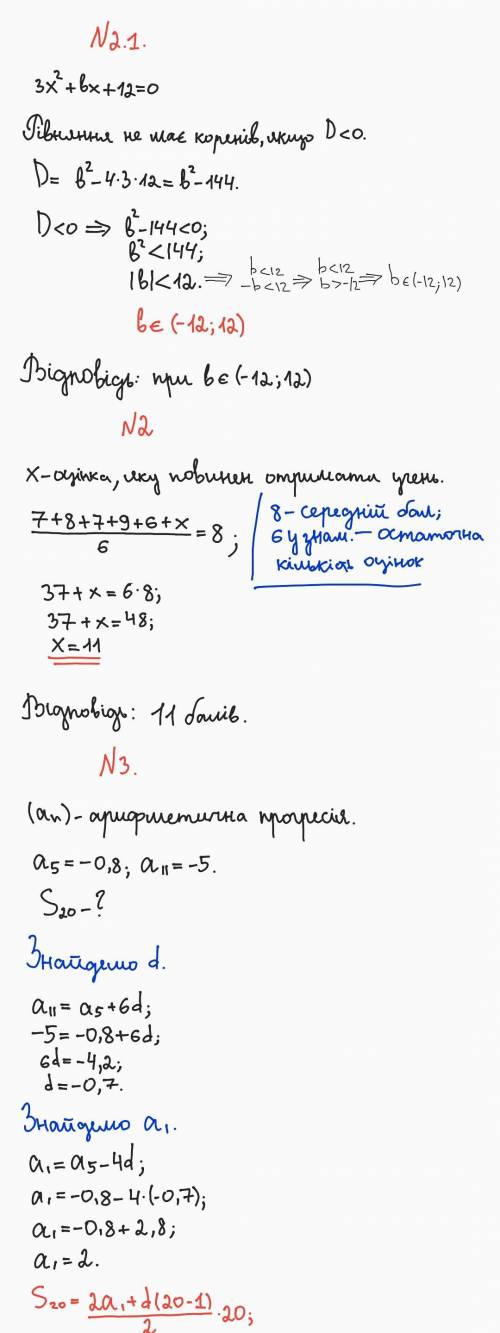 N2.1.
3x²+bx+12=0
Рівняння не має коренів, якщо D<0.
D= b²-4·3·12=b²-144.
D<0 ⇒ b²-144<0;
b²<144;
|b|<12. ⇒ b<12 -b<12 ⇒ b<12 b>-12 ⇒ b∈(-12;12)
b∈(-12;12)
Відповідь: при b∈(-12;12)
N2
x-оцінка, яку повинен отримати учень.
(7+8+7+9+6+x)/6=8;
8-середній бал;
6 у знам.-остаточна
кількість оцінок
37+x=6·8;
37+x=48;
x=11
Відповідь: 11 балів.
N3.
(an)-арифметична прогресія.
a₅=-0,8; a₁₁=-5.
S₂₀-?
Знайдемо d.
a₁₁=a₅+6d;
-5=-0,8+6d;
6d=-4,2;
d=-0,7.
Знайдемо a₁.
a₁=a₅-4d;
a₁=-0,8-4·(-0,7);
a₁=-0,8+2,8;
a₁=2.
S₂₀=(2a₁+d(20-1))/2·20;